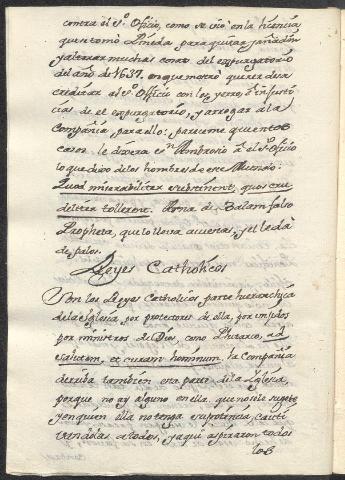 contra el Sto. Officio, como se vio en la licencia
que tomó Pineda para quitar, y añadir,
y alterar muchas cosas del expurgatorio
del año de 1637. en que mostró querer desa
creditar al Sto. Officio con los yerros, è injusti
cias de el expurgatorio, y arrogar á la
Compañia, para ello: pareceme que en tal
caso le dixera Sn. Ambrosio à el Sto. Officio
lo que dixo de los hombres de este Mundo:
Quod miserabiliter subtinent, quos cru
deliter tollerent. Asna de Balam falso
Propheta, que lo lleva acuestas, y el le dà
de palos.
Reyes Catholicos
Son los Reyes Catholicos parte hierarchica
de la Iglesia, por protectores de ella, por impulsos
por ministros de Dios, como
salutem, et curam hominum. la Compañia
derriba tambien esta parte de la Iglesia,
porque no ay alguno en ella, que no se le sugete
y en quien ella no tenga su potencia, cauti
vandolas a todos, y a qui aspiraron todos
los